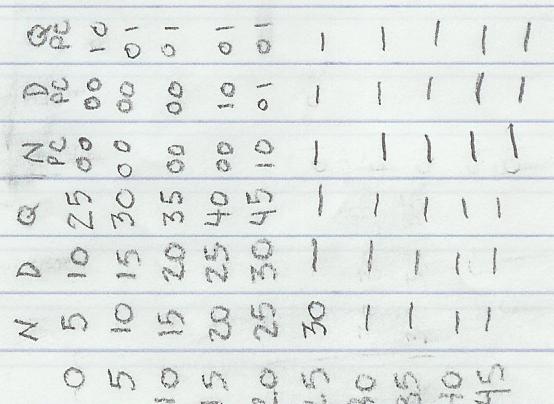 N D Q N D Q
PC PC PC
0 5 10 25 00 00 10
5 10 15 30 00 00 01
10 15 20 35 00 00 01
15 20 25 40 00 10 01
20 25 30 45 10 01 01
25 30 — — — — —
30 — — — — — —
35 — — — — — —
40 — — — — — —
45 — — — — — —